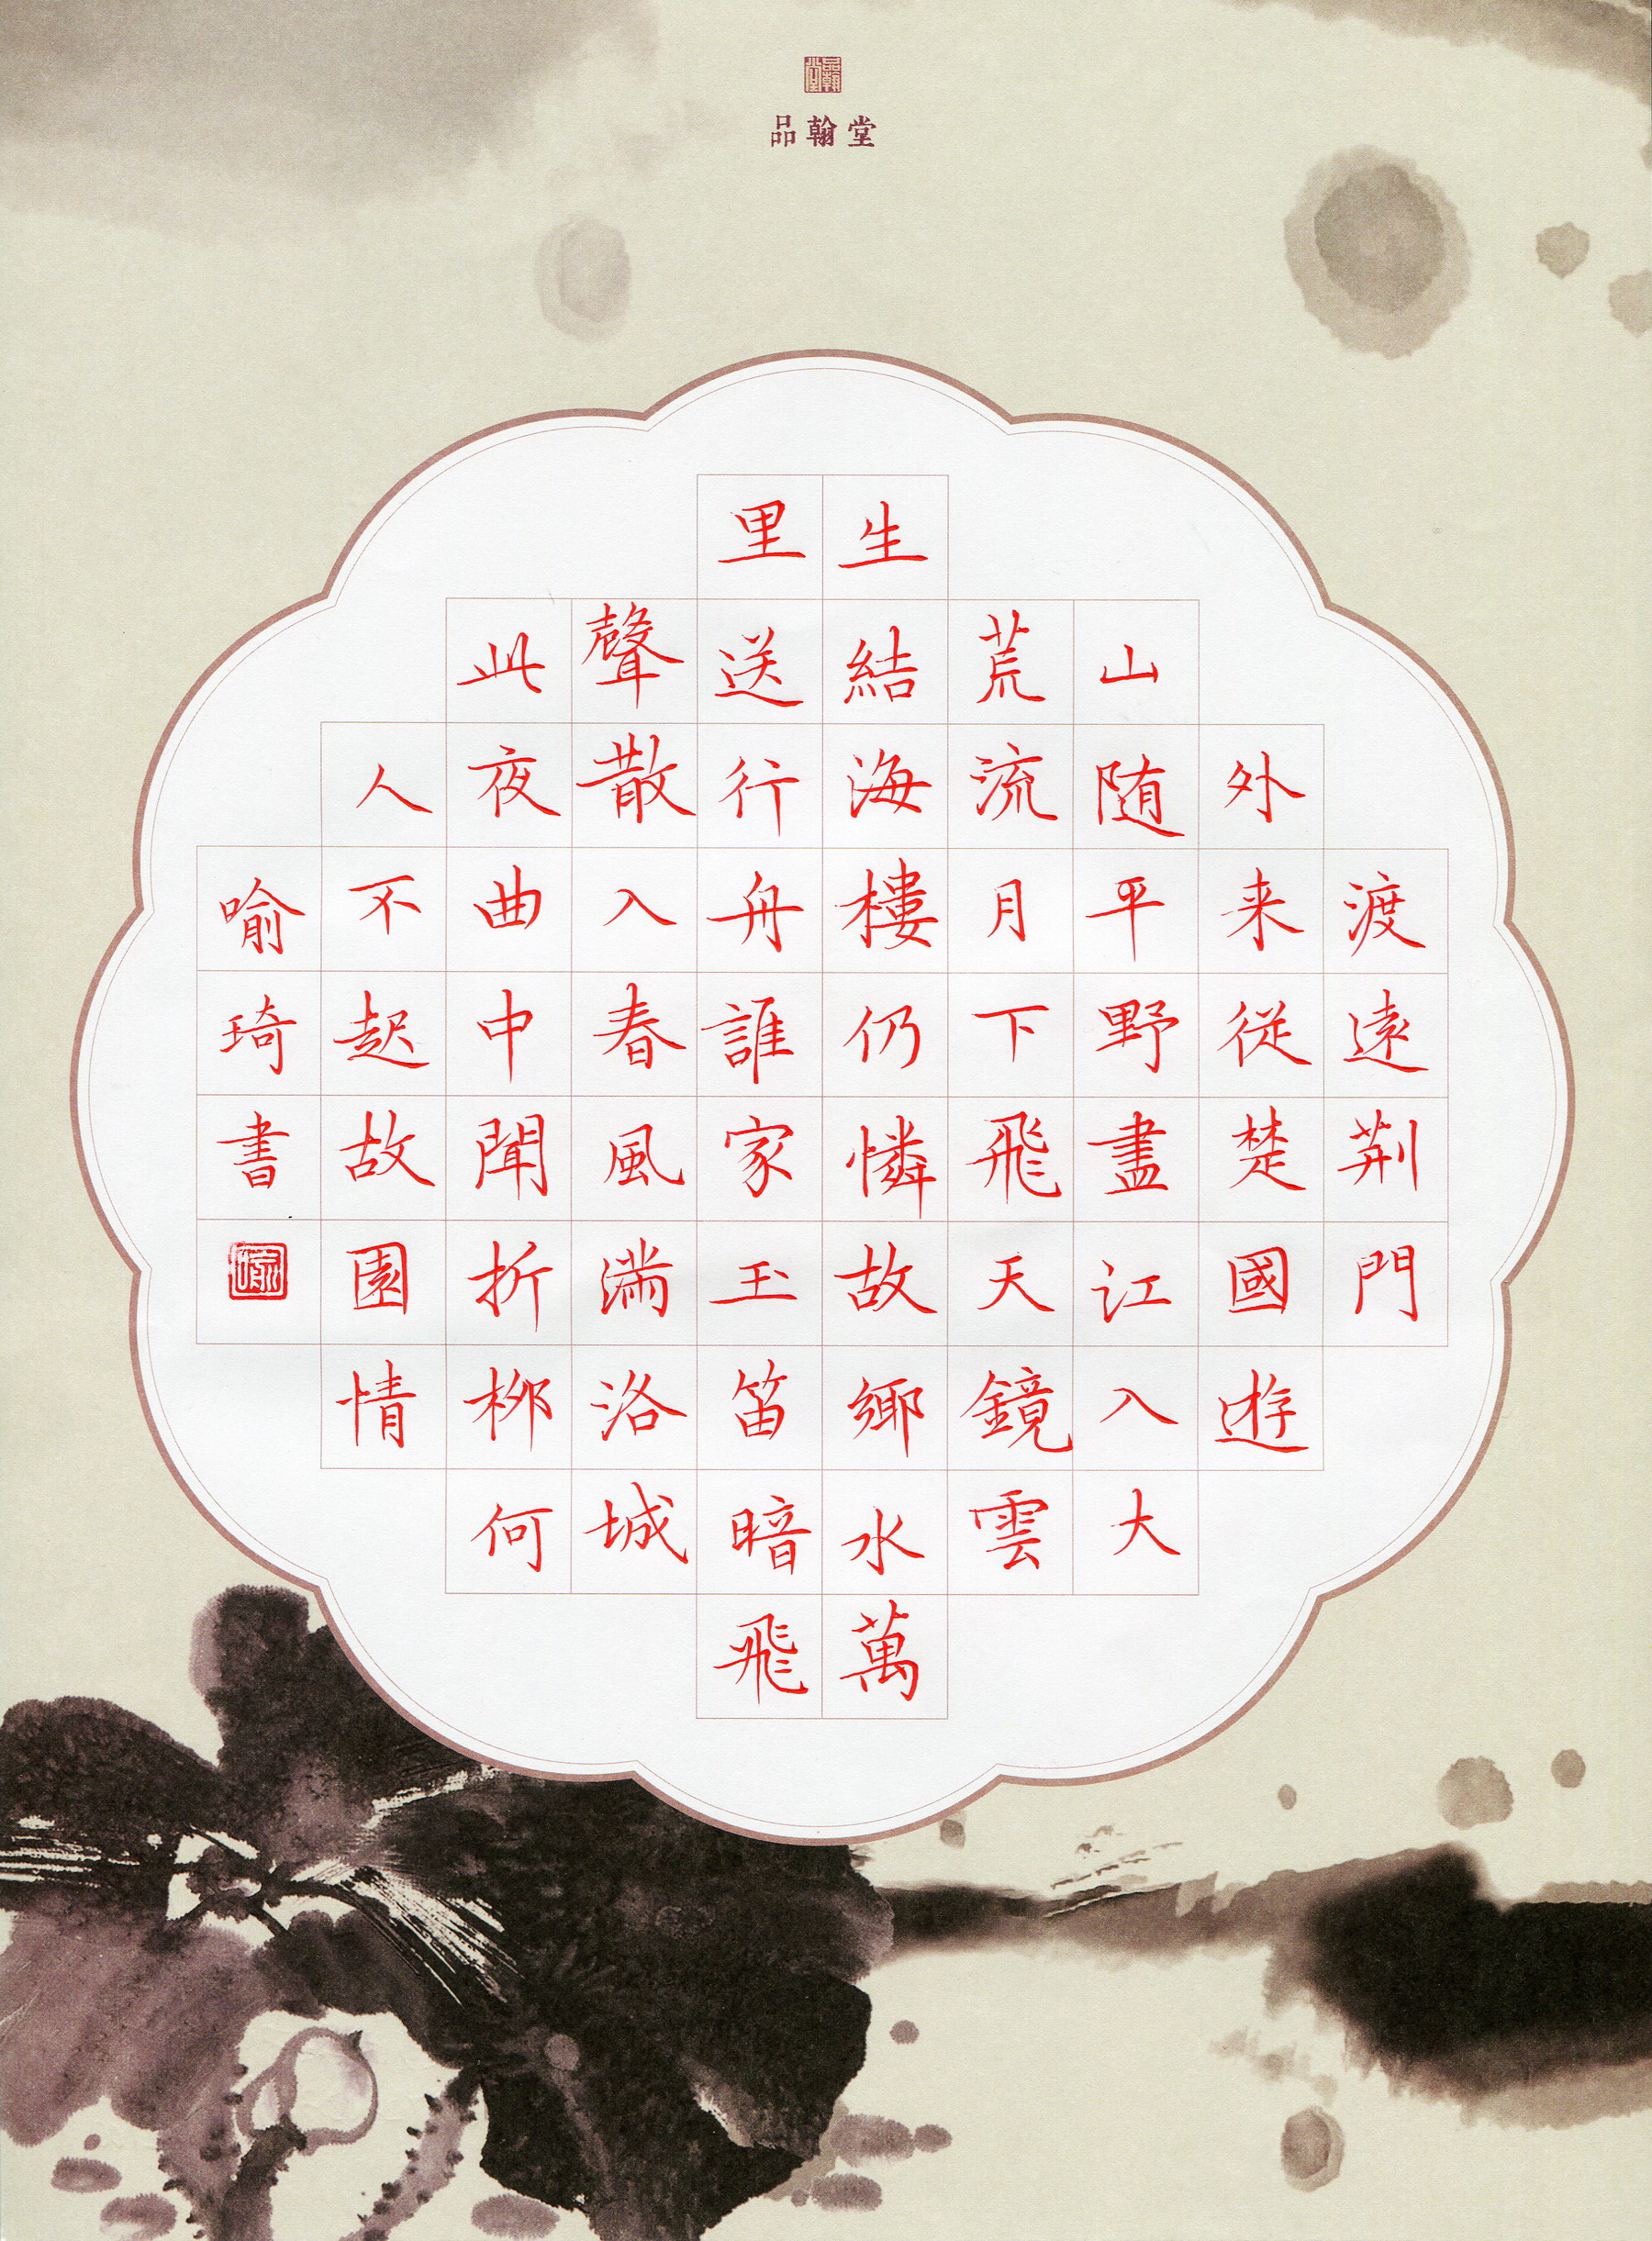 品翰堂
品翰堂
渡遠荊門
外来從楚國遊
山随平野盡江入大
荒流月下飛天鏡雲
生結海樓仍憐故鄉水萬
里送行舟誰家玉笛暗飛
聲散入春風滿洛城
此夜曲中聞折柳何
人不起故園情
喻琦書
喻